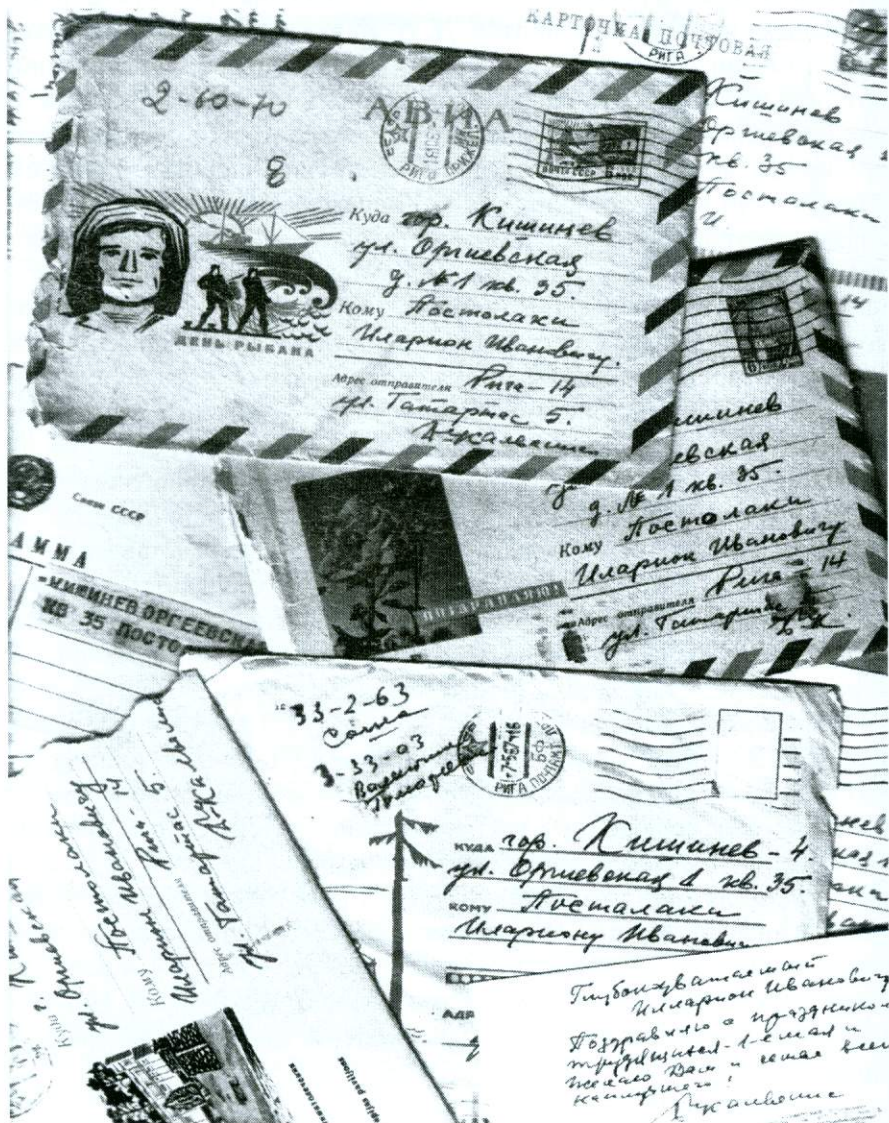 КАРТОЧКА ПОЧТОВАЯ
РИГА
Кишинев
Оргиевская
кв. 35
Постолаки
И.
2-60-70
8
АВИА
РИГА
ПОЧТА СССР
Куда гор. Кишинев
ул. Оргиевская
д. №1 кв. 35.
Кому Постолаки
Иларион Ивановичу.
Адрес отправителя Рига-14
ул. Татарнас 5.
ДЕНЬ РЫБАКА
14
д. № 1 кв. 35.
Кому Постолаки
Иларион Ивановичу
Адрес отправителя Рига-14
ПОЗДРАВЛЯЮ!
Связи СССР
АММА
=КИШИНЕВ ОРГЕЕВСКАЯ
КВ 35 ПОСТО
33-2-63
3-33-03
РИГА ПОЧТАМТ
КУДА гор. Кишинев-4.
ул. Оргиевская 1 кв. 35.
КОМУ Постолаки
Илариону Иванович
АДР
Куда г.
ул. Оргиевская
Кому Постолаки
Илариону Ивановичу
Адрес отправителя Рига-14
5.
Глубокоуважаемый
Илларион Иванович
Поздравляю с праздником
трудящихся 1-е мая и
желаю Вам и семье всего
наилучшего!